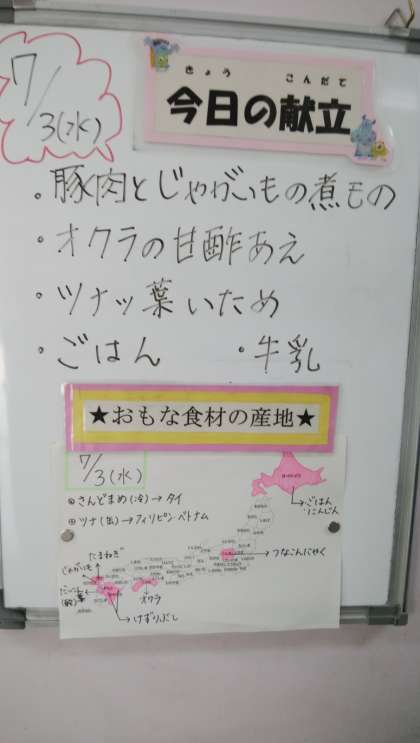 7/3(水)
きょう こんだて
今日の献立
・豚肉とじゃがいもの煮もの
・オクラの甘酢あえ
・ツナッ葉いため
・ごはん ・牛乳
★おもな食材の産地★
7/3(水)
さんどまめ(冷)→タイ
ツナ(缶)→フィリピン・ベトナム
ごはん
にんじん
つなこんにゃく
たまねぎ
じゃがいも
オクラ
けずりぶし